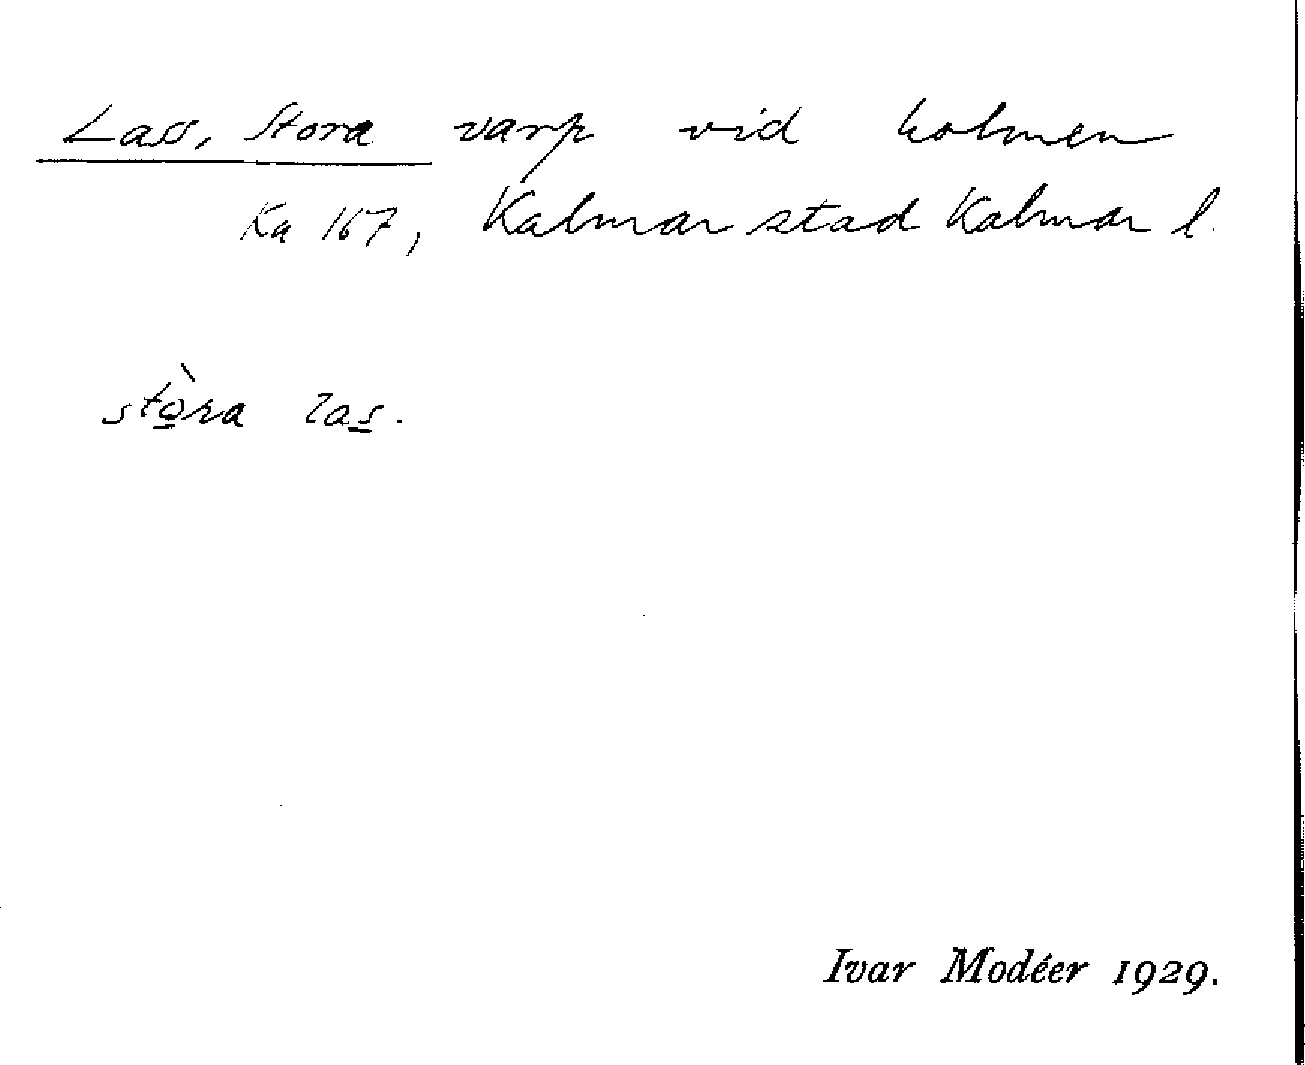 Lass, Stora varp vid holmen
Ka 167, Kalmar stad Kalmar l.
stò̱ra las̱.
Ivar Modéer 1929.